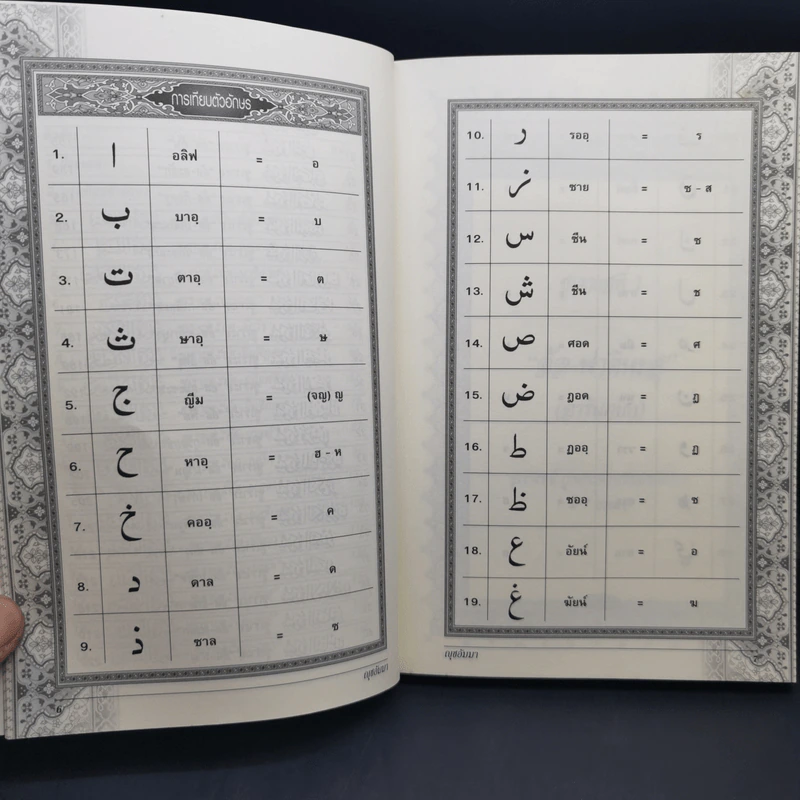 การเทียบตัวอักษร
1. ا อลิฟ = อ
2. ب บาอฺ = บ
3. ت ตาอฺ = ต
4. ث ษาอฺ = ษ
5. ج ญีม = (จญ) ญ
6. ح หาอฺ = ฮ - ห
7. خ คออฺ = ค
8. د ดาล = ด
9. ذ ซาล = ซ
ญุซอัมมา
6
10. ر รออฺ = ร
11. ز ซาย = ซ - ส
12. س ซีน = ซ
13. ش ชีน = ช
14. ص ศอด = ศ
15. ض ฎอด = ฎ
16. ط ฏออฺ = ฏ
17. ظ ซออฺ = ซ
18. ع อัยน์ = อ
19. غ ฆัยน์ = ฆ
ญุซอัมมา